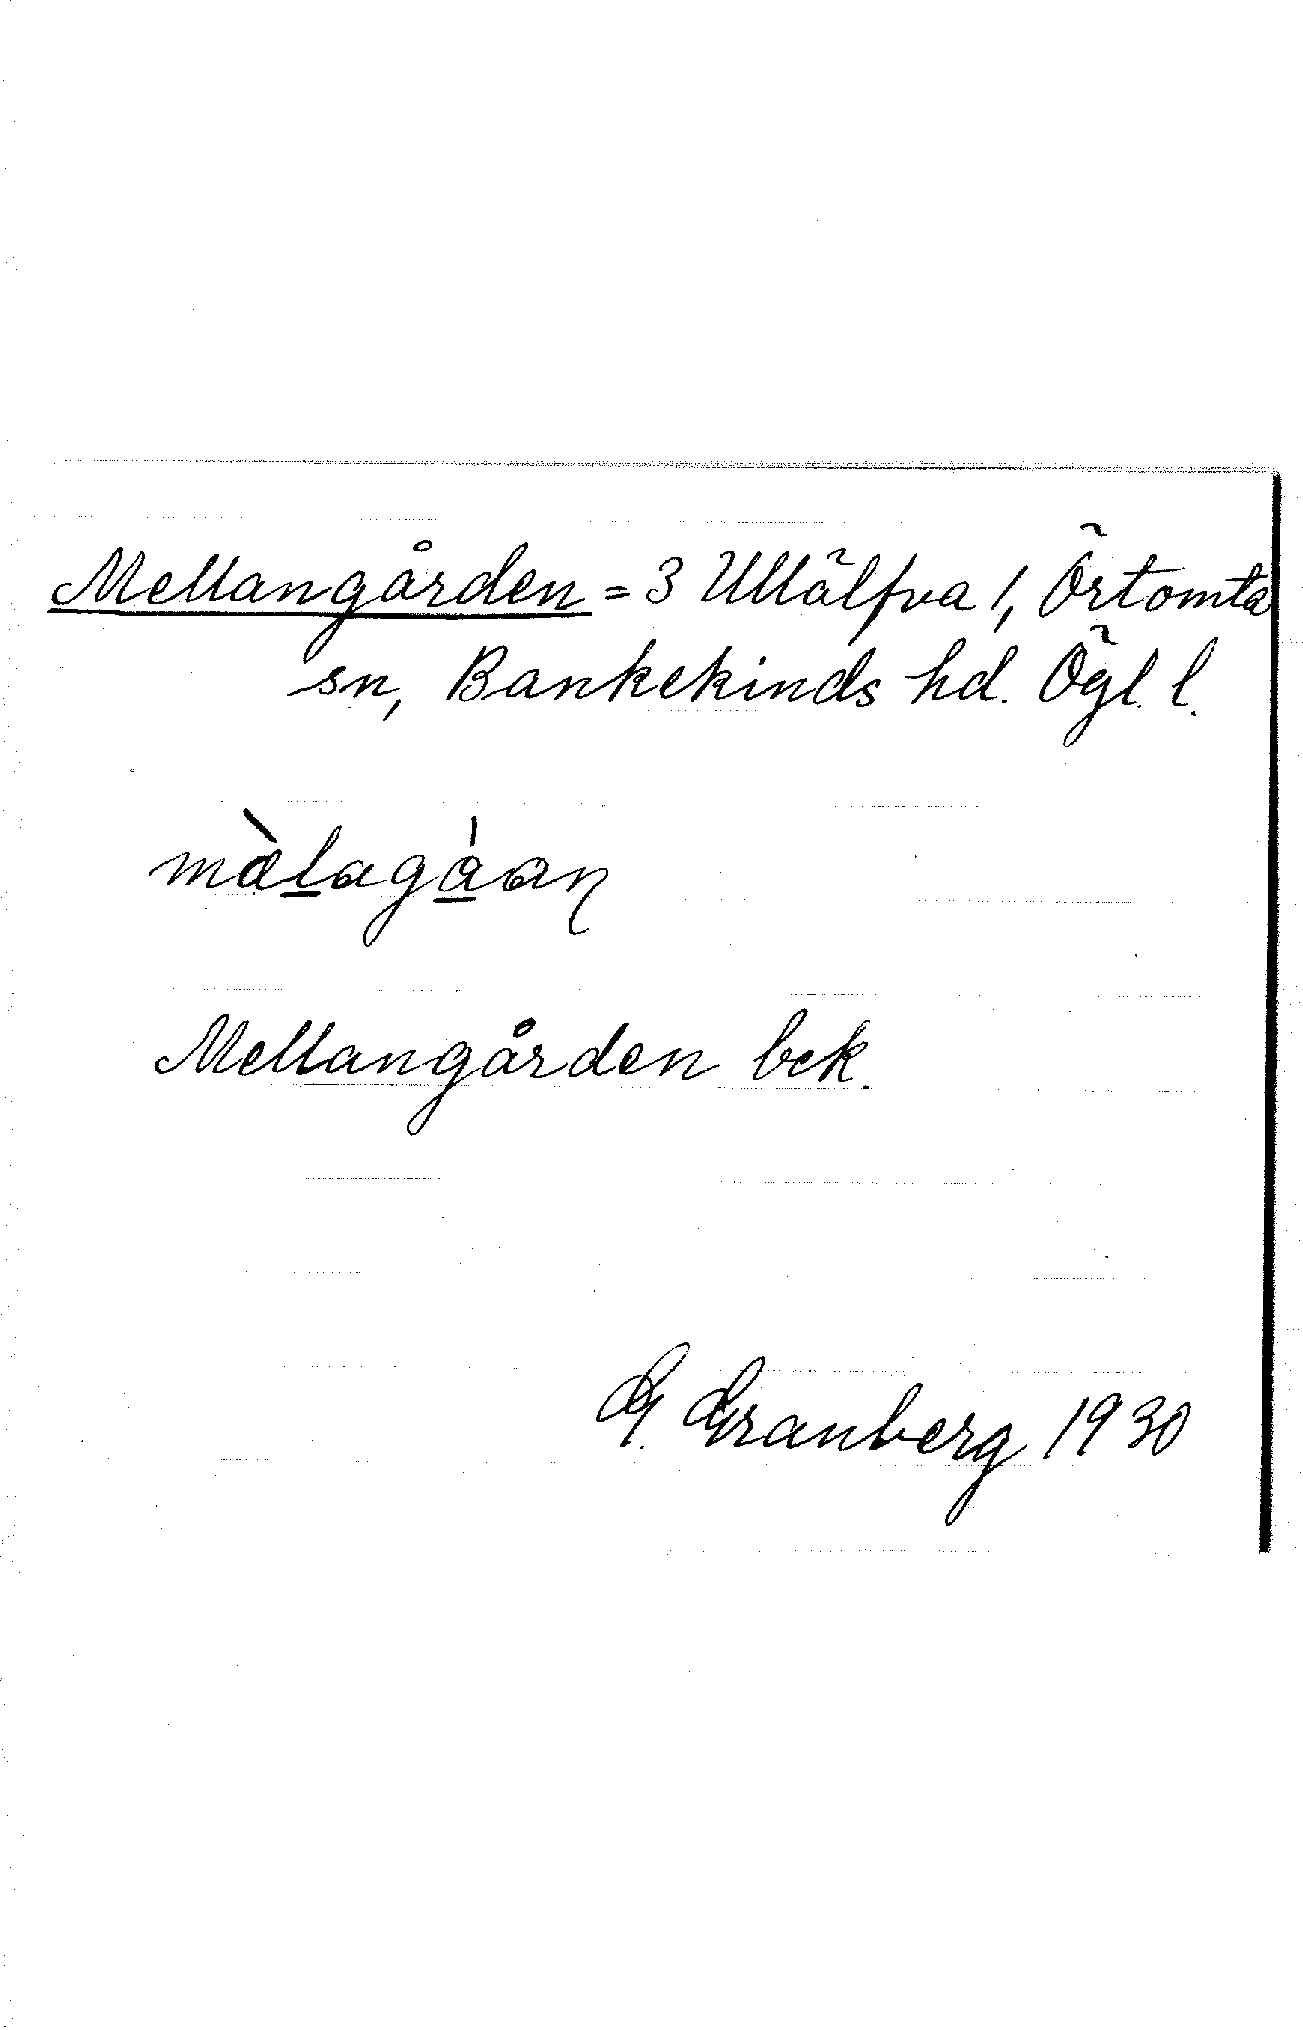 Mellangården = 3 Ullälfva 1, Örtomta
sn, Bankekinds hd. Ögl. l.
mæ̀lagáan
Mellangården bek.
G. Granberg 1930